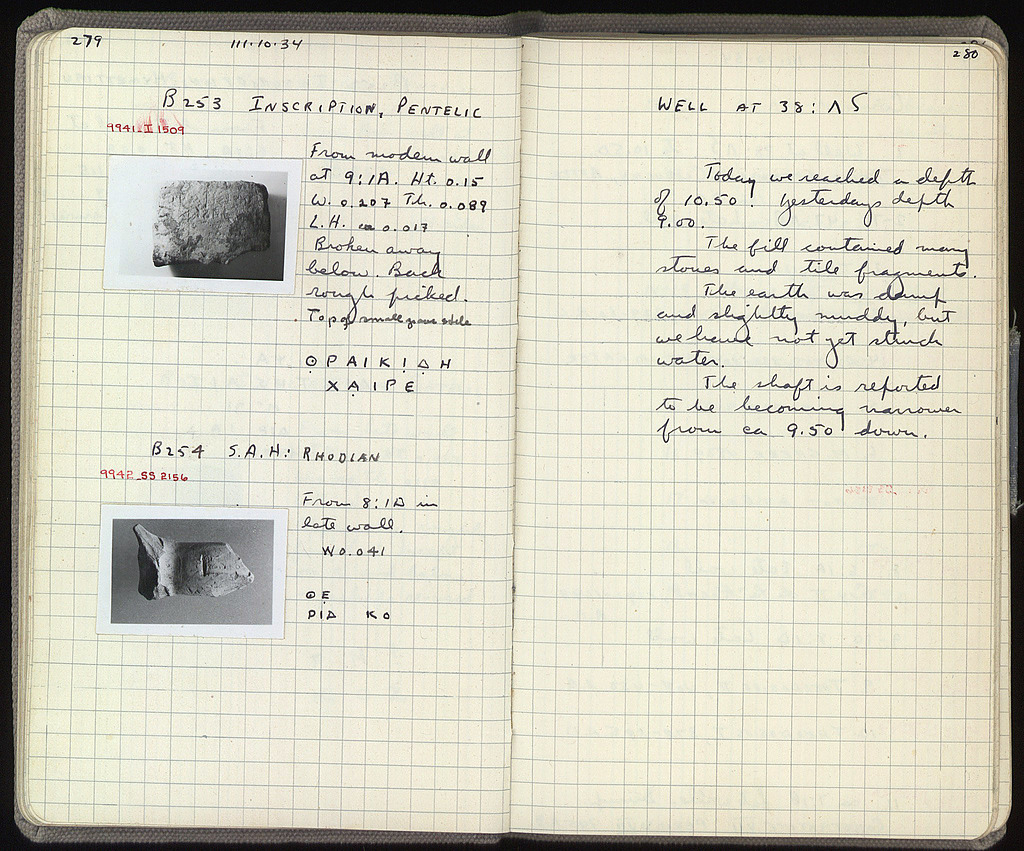 279
111·10·34
B253 INSCRIPTION, PENTELIC
9941_I 1509
From modern wall
at 9:1A. Ht. 0.15
W. 0.207 Th. 0.089
L.H. ca 0.017
Broken away
below. Back
rough picked.
Top of small grave stele
ΘΡΑΙΚΙΔΗ
ΧΑΙΡΕ
B254 S.A.H: RHODIAN
9942_SS 2156
From 8:1Δ in
late wall.
W 0.041
ΘΕ
ΡΙΔ ΚΟ
280
WELL AT 38:ΛS
Today we reached a depth
of 10.50. Yesterdays depth
9.00.
The fill contained many
stones and tile fragments.
The earth was damp
and slightly muddy, but
we have not yet struck
water.
The shaft is reported
to be becoming narrower
from ca 9.50 down.